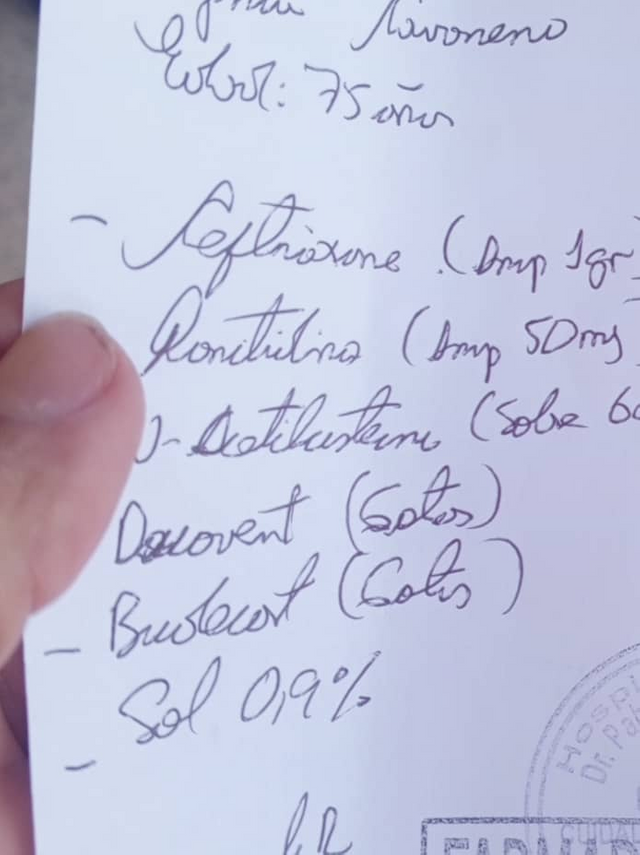 Navoneno
Edad: 75 años
- Ceftriaxone (Amp 1gr)
Ranitidina (Amp 50mg
N-Acetilcisteina (Sobre 60
Duovent (Gotas)
- Budecort (Gotas)
Sol 0,9%
-
HOSPI
Dr. Pa
CUIDA
FARMA